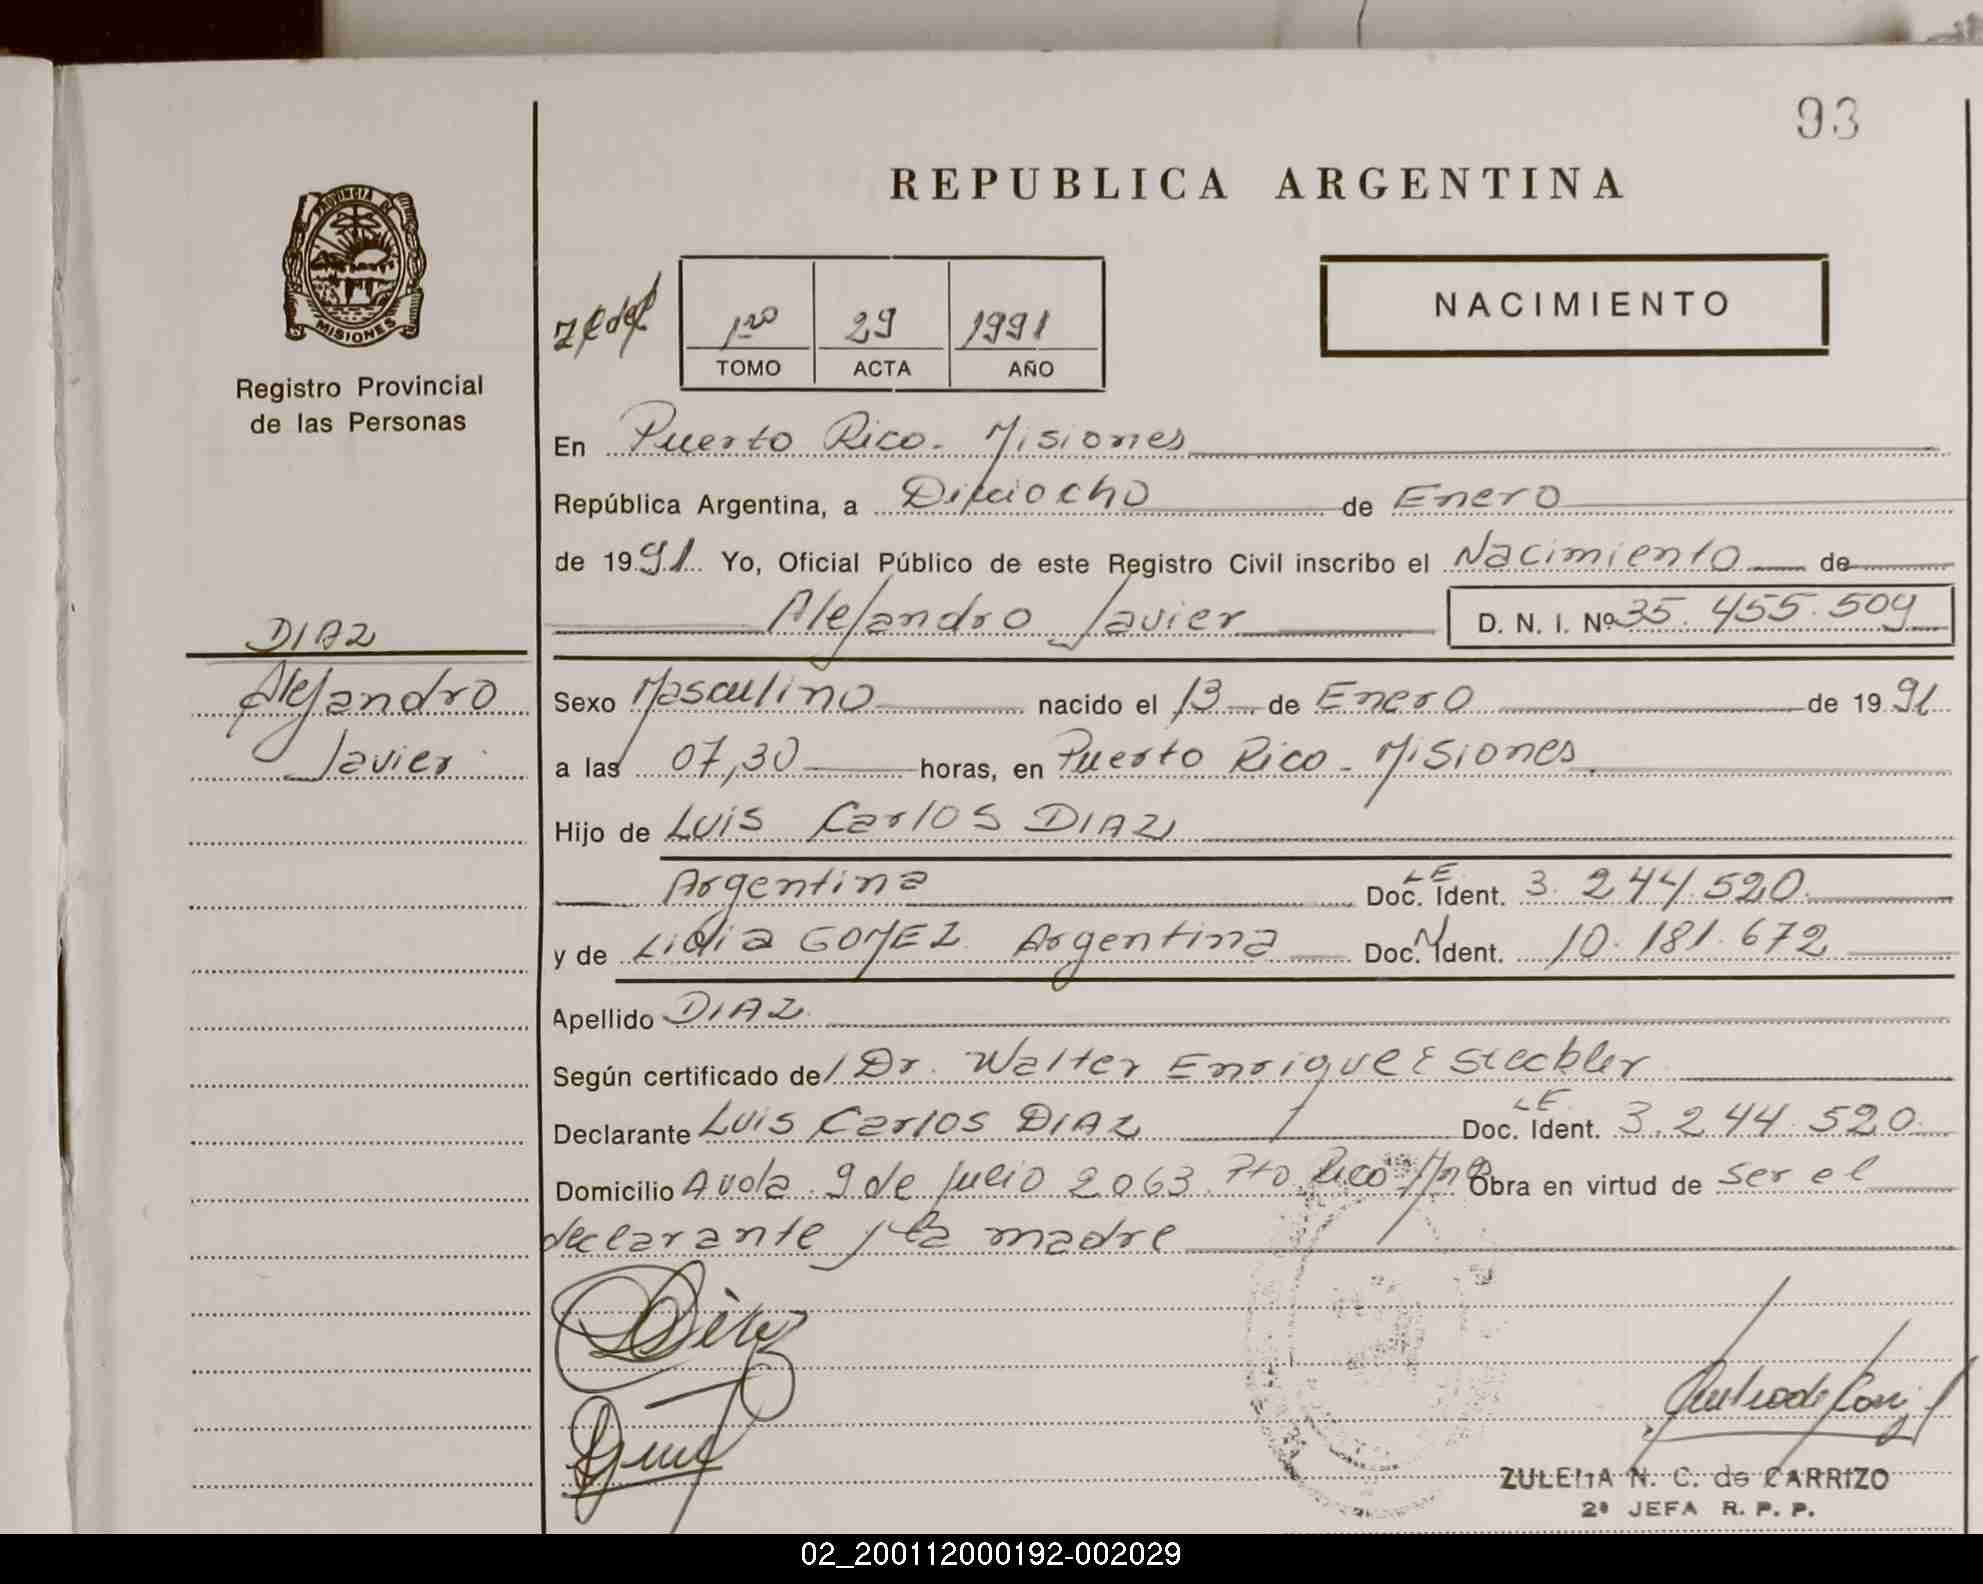 93
REPUBLICA ARGENTINA
PROVINCIA DE
MISIONES
Registro Provincial
de las Personas
NACIMIENTO
1ro 29 1991
TOMO ACTA AÑO
En Puerto Rico - Misiones
República Argentina, a Dieciocho de Enero
de 1991 Yo, Oficial Público de este Registro Civil inscribo el Nacimiento de
Alejandro Javier D. N. I. Nº 35.455.509
DIAZ
Alejandro
Javier
Sexo Masculino nacido el 13 de Enero de 1991
a las 07,30 horas, en Puerto Rico - Misiones
Hijo de Luis Carlos DIAZ
Argentina Doc. Ident. LE 3.244.520
y de Lidia GOMEZ Argentina Doc. Ident. 10.181.672
Apellido DIAZ
Según certificado de/ Dr. Walter Enrique Steckler
Declarante Luis Carlos DIAZ Doc. Ident. LE 3.244.520
Domicilio Avda. 9 de julio 2063 Pto Rico Mnes Obra en virtud de ser el
declarante y la madre
Diaz
ZULEMA N. C. de CARRIZO
2º JEFA R. P. P.
02_200112000192-002029